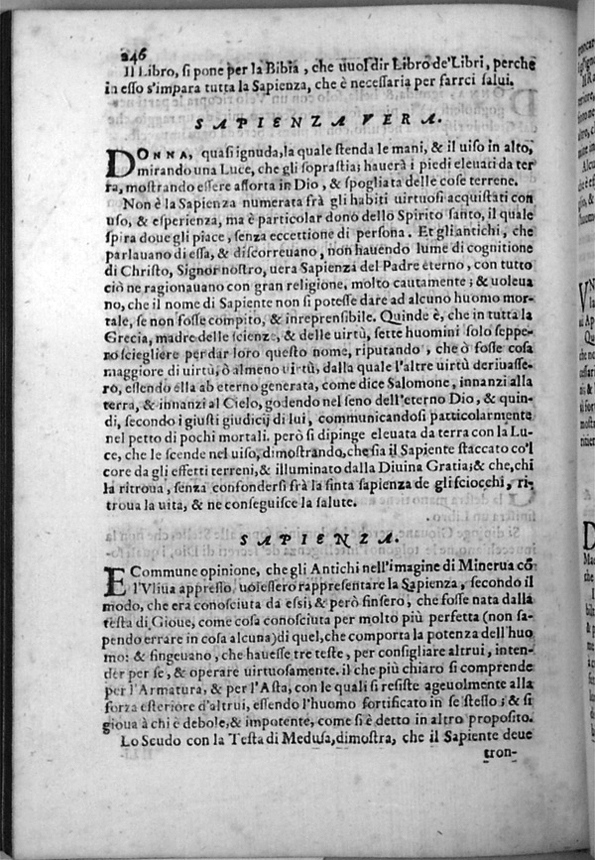 246
Il Libro, si pone per la Bibia, che uuol dir Libro de'Libri, perche
in esso s'impara tutta la Sapienza, che è necessaria per farrci salui.
SAPIENZA VERA.
DONNA, quasi ignuda, la quale stenda le mani, & il uiso in alto,
mirando una Luce, che gli soprastia; hauerà i piedi eleuati da ter
ra, mostrando essere assorta in Dio, & spogliata delle cose terrene.
Non è la Sapienza numerata frà gli habiti uirtuosi acquistati con
uso, & esperienza, ma è particolar dono dello Spirito santo, il quale
spira doue gli piace, senza eccettione di persona. Et gli antichi, che
parlauano di essa, & discorreuano, non hauendo lume di cognitione
di Christo, Signor nostro, uera Sapienza del Padre eterno, con tutto
ciò ne ragionauano con gran religione, molto cautamente; & uoleua
no, che il nome di Sapiente non si potesse dare ad alcuno huomo mor-
tale, se non fosse compito, & inreprensibile. Quinde è, che in tutta la
Grecia, madre delle scienze, & delle uirtù, sette huomini solo seppe-
ro sciegliere per dar loro questo nome, riputando, che ò fosse cosa
maggiore di uirtù, ò almeno uirtù, dalla quale l'altre uirtù deriuasse-
ro, essendo ella ab eterno generata, come dice Salomone, innanzi alla
terra, & innanzi al Cielo, godendo nel seno dell'eterno Dio, & quin-
di, secondo i giusti giudicij di lui, communicandosi particolarmente
nel petto di pochi mortali. però si dipinge eleuata da terra con la Lu-
ce, che le scende nel uiso, dimostrando, che sia il Sapiente staccato co'l
core da gli effetti terreni, & illuminato dalla Diuina Gratia; & che, chi
la ritroua, senza confondersi frà la finta sapienza de gli sciocchi, ri-
troua la uita, & ne conseguisce la salute.
SAPIENZA.
E Commune opinione, che gli Antichi nell'imagine di Minerua cō
l'Vliua appresso, uolessero rappresentare la Sapienza, secondo il
modo, che era conosciuta da essi; & però finsero, che fosse nata dalla
testa di Gioue, come cosa conosciuta per molto più perfetta (non sa-
pendo errare in cosa alcuna) di quel, che comporta la potenza dell'huo
mo: & fingeuano, che hauesse tre teste, per consigliare altrui, inten-
der per se, & operare uirtuosamente. il che più chiaro si comprende
per l'Armatura, & per l'Asta, con le quali si resiste ageuolmente alla
forza esteriore d'altrui, essendo l'huomo fortificato in se stesso; & si
gioua à chi è debole, & impotente, come si è detto in altro proposito.
Lo Scudo con la Testa di Medusa, dimostra, che il Sapiente deue
tron-